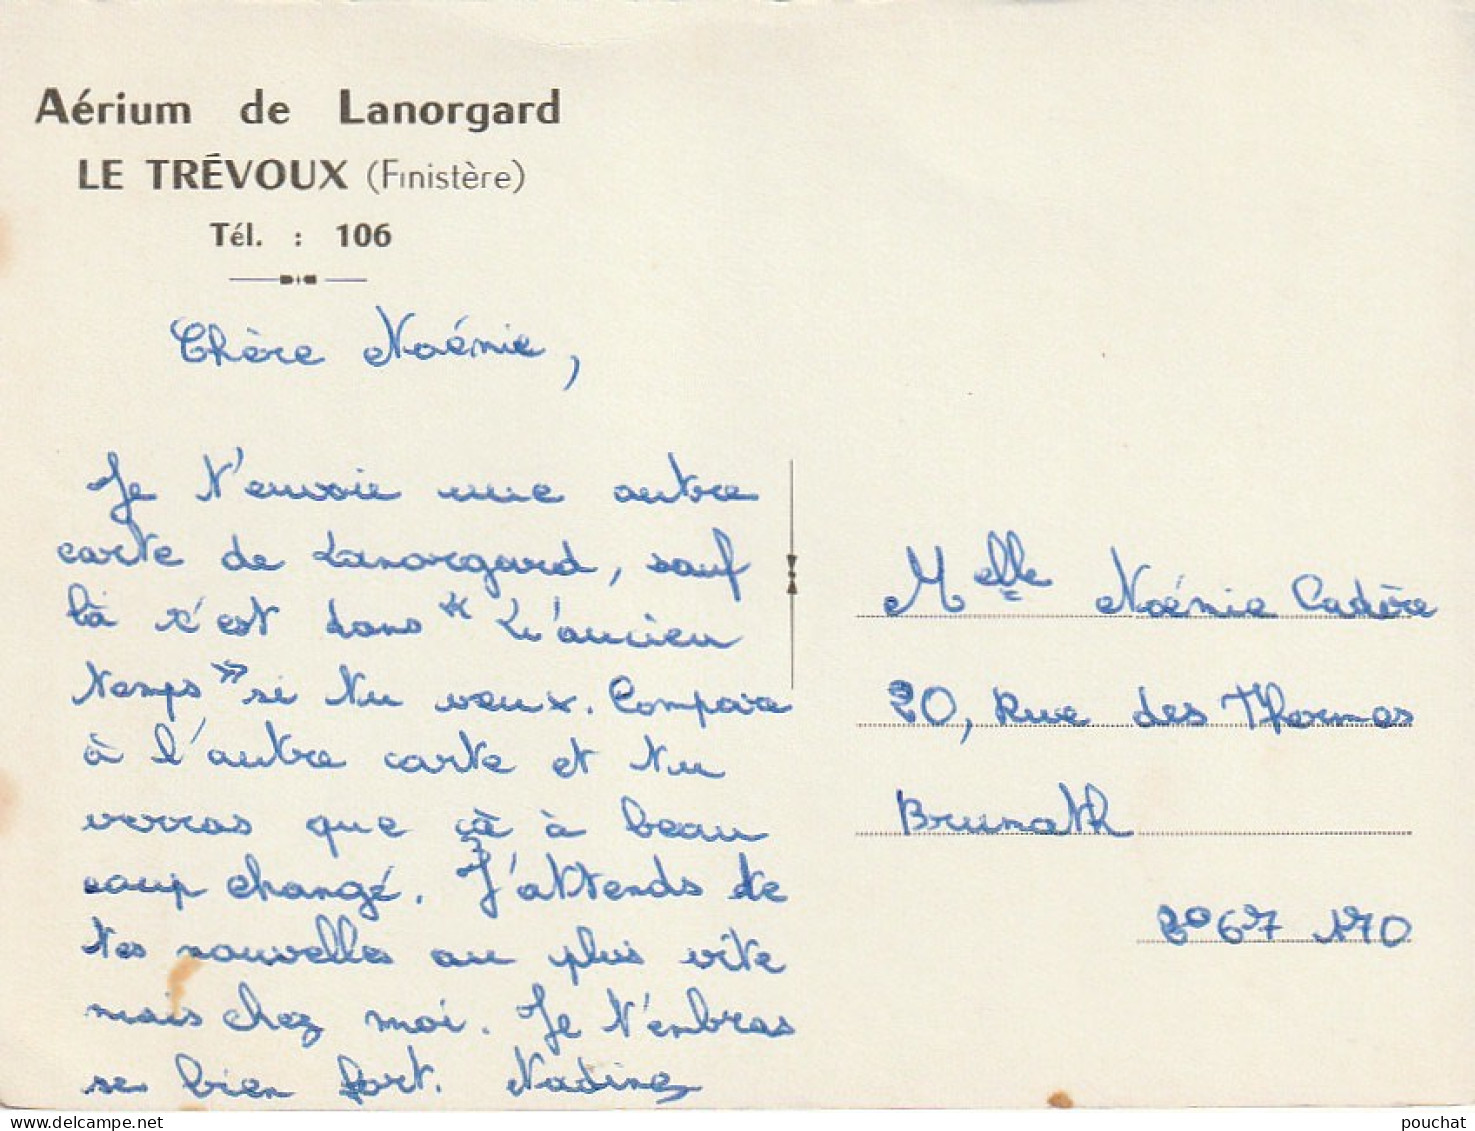 Aérium de Lanorgard
LE TRÉVOUX (Finistère)
Tél. : 106
Chère Noémie,
Je t'envoie une autre
carte de Lanorgard, sauf
là c'est dans "L'ancien
temps" si tu veux. Compare
à l'autre carte et tu
verras que çà à beau
coup changé. J'attends de
tes nouvelles au plus vite
mais chez moi. Je t'embras
se bien fort. Nadine
Melle Noémie Cadère
20, Rue des Thermes
Brumath
67 170
pouchat